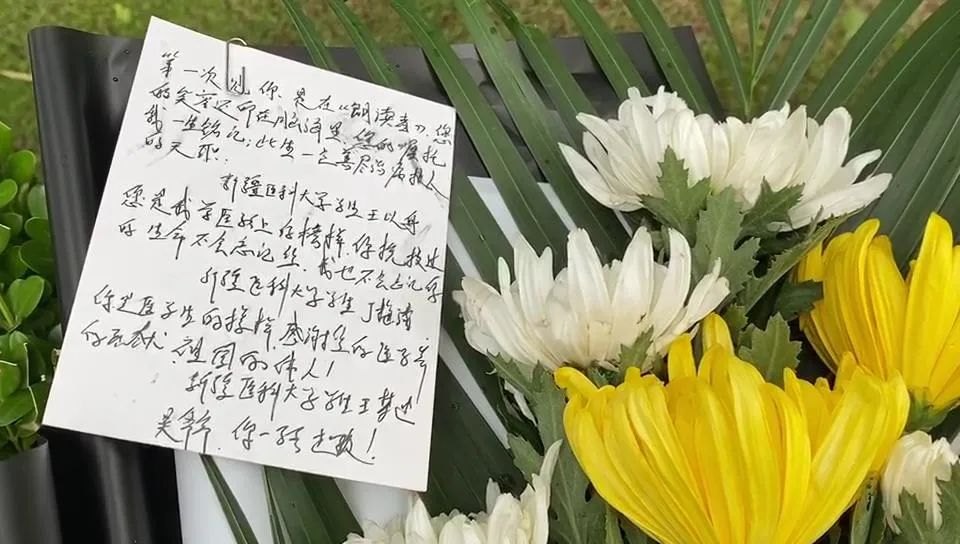 第一次见你,是在《朗读者》,您
的笑容还印在脑海里,您的嘱托
我一生铭记;此生一定善尽治病救人
的天职.
新疆医科大学学生王以
您是我学医路上的榜样,你挽救过
的生命不会忘记您,我也不会忘记你
新疆医科大学学生丁
你是医学生的榜样,感谢您的
的贡献.祖国的伟人!
新疆医科大学学生王梦
吴爷爷,你一路走好!